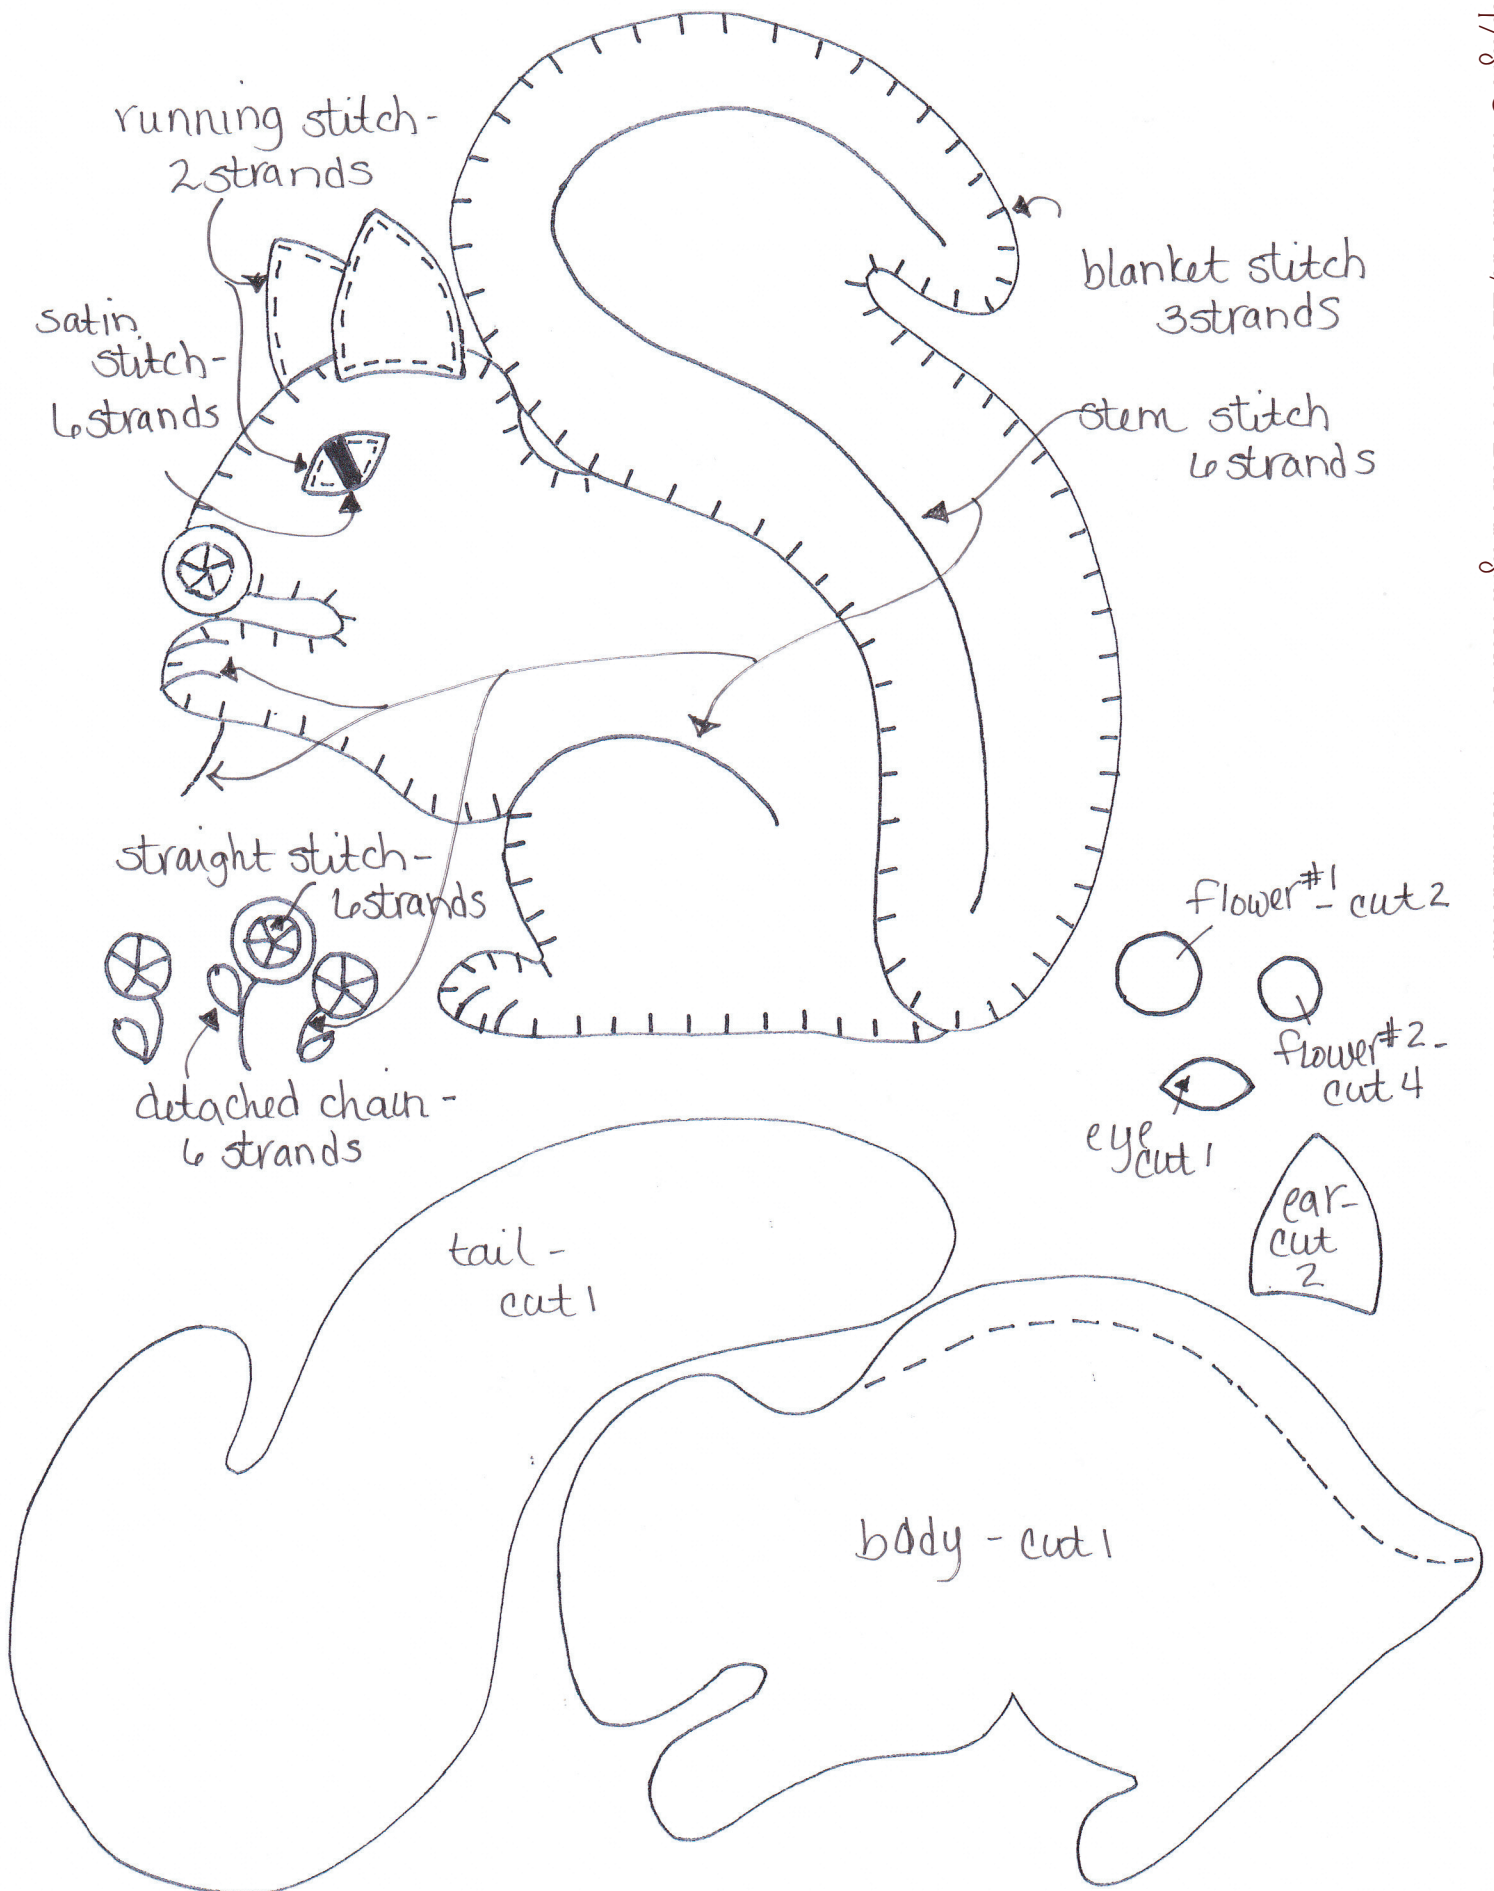 running stitch-
2 strands
satin
stitch-
6 strands
blanket stitch
3 strands
stem stitch
6 strands
straight stitch-
6 strands
detached chain-
6 strands
flower #1- cut 2
flower #2-
cut 4
eye
cut 1
ear-
cut
2
tail-
cut 1
body - cut 1